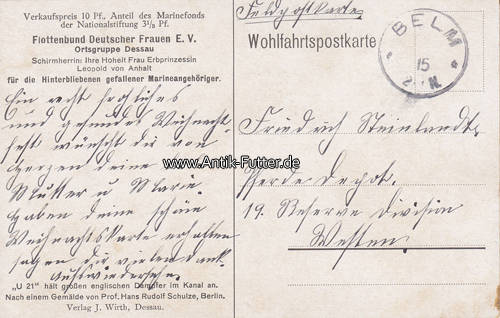 Verkaufspreis 10 Pf., Anteil des Marinefonds
der Nationalstiftung 3⅓ Pf.
Flottenbund Deutscher Frauen E. V.
Ortsgruppe Dessau
Schirmherrin: Ihre Hoheit Frau Erbprinzessin
Leopold von Anhalt
für die Hinterbliebenen gefallener Marineangehöriger.
Ein recht frohliches
und gesundes Weihnacht-
fest wünscht dir von
Herzen deine
Mutter u Marie.
Haben deine schöne
Weihnachtskarte erhalten
sagen dir vielen dank.
Aufwiedersehn.
„U 21“ hält großen englischen Dampfer im Kanal an.
Nach einem Gemälde von Prof. Hans Rudolf Schulze, Berlin.
Verlag J. Wirth, Dessau.
Feldpostkarte
Wohlfahrtspostkarte
BELM
15
N.
Friedrich Steinlandt
Pferde Depot.
19. Reserve Division
Westen
www.Antik-Futter.de